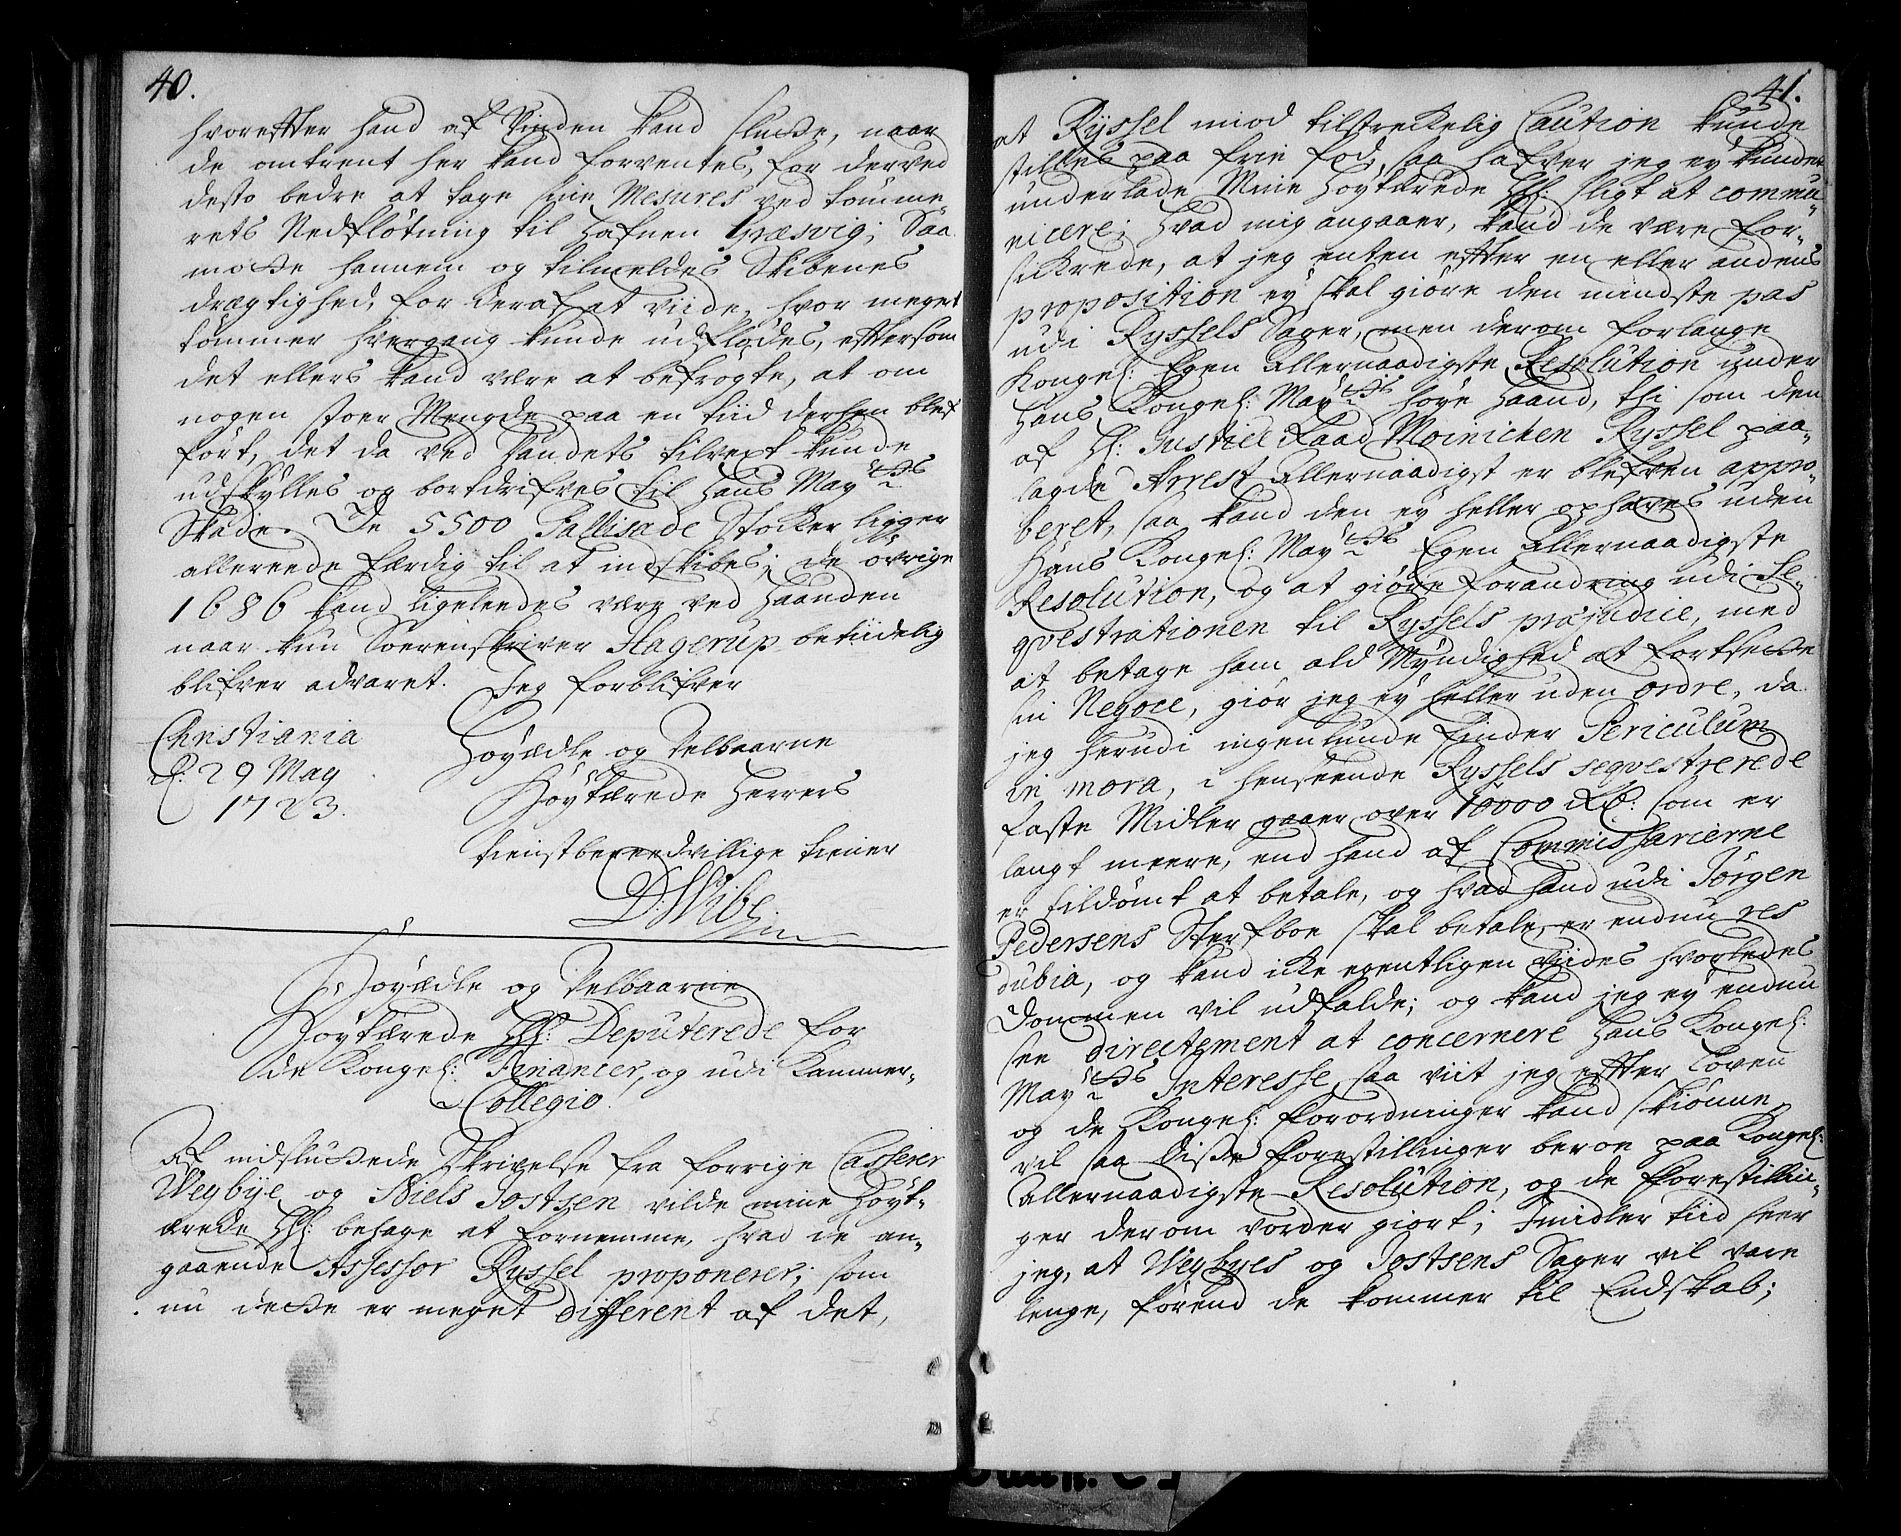 40.
hvorefter hand af Vinden kand slutte, naar
de omtrent her kand forventes, for derved
desto bedre at tage sine Mesures ved tømme-
rets Nedflötning til Hafnen Græsvig; Saa
motte hannem og tilmeldes Skibenes
drægtighed, for deraf at viide, hvor meget
tømmer hvergang kunde udflödes, eftersom
det ellers kand være at befrygte, at om
nogen stoer Mengde paa en tiid derhen blef
ført, det da ved Vandets tilvext kunde
udskylles og bortdrifves til Hans Mayts
Skade. De 5500 Pallisade Stocker ligger
allereede færdig til at indskibes; de øvrige
1686 kand ligeleedes være ved Haanden
naar kun Soerenskriver Hagerup betiidelig
blifver advaret. Jeg forblifver
Christiania
d: 29 May
1723.
Høyædle og Velbaarne
Høytærede Herrers
tienstbereedvillige tiener
D: Wibe
Høyædle og Velbaarne
Høytærede Hr: Deputerede for
de Kongel: Financer, og udi Kammer-
Collegio!
Af indsluttede Skrivelse fra forrige Casserer
Weybye og Niels Jostsen vilde mine Høyt-
ærede Hr: behage at fornemme, hvad de an-
gaaende Assessor Ryssel proponerer; som
nu dette er meget different af det,
41.
at Ryssel mod tilstreckelig Caution kunde
stilles paa frie fod, saa hafver jeg ey kundet
underlade Mine Høytærede Hr: sligt at commu-
nicere; hvad mig angaaer, kand de være for-
sikrede, at jeg enten efter en eller andens
proposition ey skal giøre den mindste pas
udi Ryssels Sager, men derom forlange
Kongel: Egen Allernaadigste Resolution under
Hans Kongel: Mayts høye Haand, thi som den
af Hr: Justice Raad Moinichen Ryssel paa-
lagde Arrest Allernaadigst er blefven appro-
beret, saa kand den ey heller ophæves uden
Hans Kongel: Mayts Egen Allernaadigste
Resolution, og at giøre forandring udi Se-
qvestrationen til Ryssels præjudice, med
at betage ham ald Myndighed at fortsette
sin Negoce, giør jeg ey heller uden ordre, da
jeg herudi ingenlunde finder Periculum
in mora, i henseende Ryssels seqvestrerede
faste Midler gaaer over 10000 Rd: som er
langt meere, end hand af Commissarierne
er tildømt at betale, og hvad hand udi Jörgen
Pedersens Sterfboe skal betale, er endnu res
dubia, og kand icke egentligen viides hvorledes
Dommen vil udfalde; og kand jeg ey endnu
see directement at concernere Hans Kongel:
Mayts Interesse, saa viit jeg efter Loven
og de Kongel: forordninger kand skiönne,
vil saa disse forestillinger beroe paa Kongel:
allernaadigste Resolution, og de forestillin-
ger derom vorder giort; Imidlertiid seer
jeg, at Weybyes og Jostsens Sager vil vare
lenge, förend de kommer til Endskab;